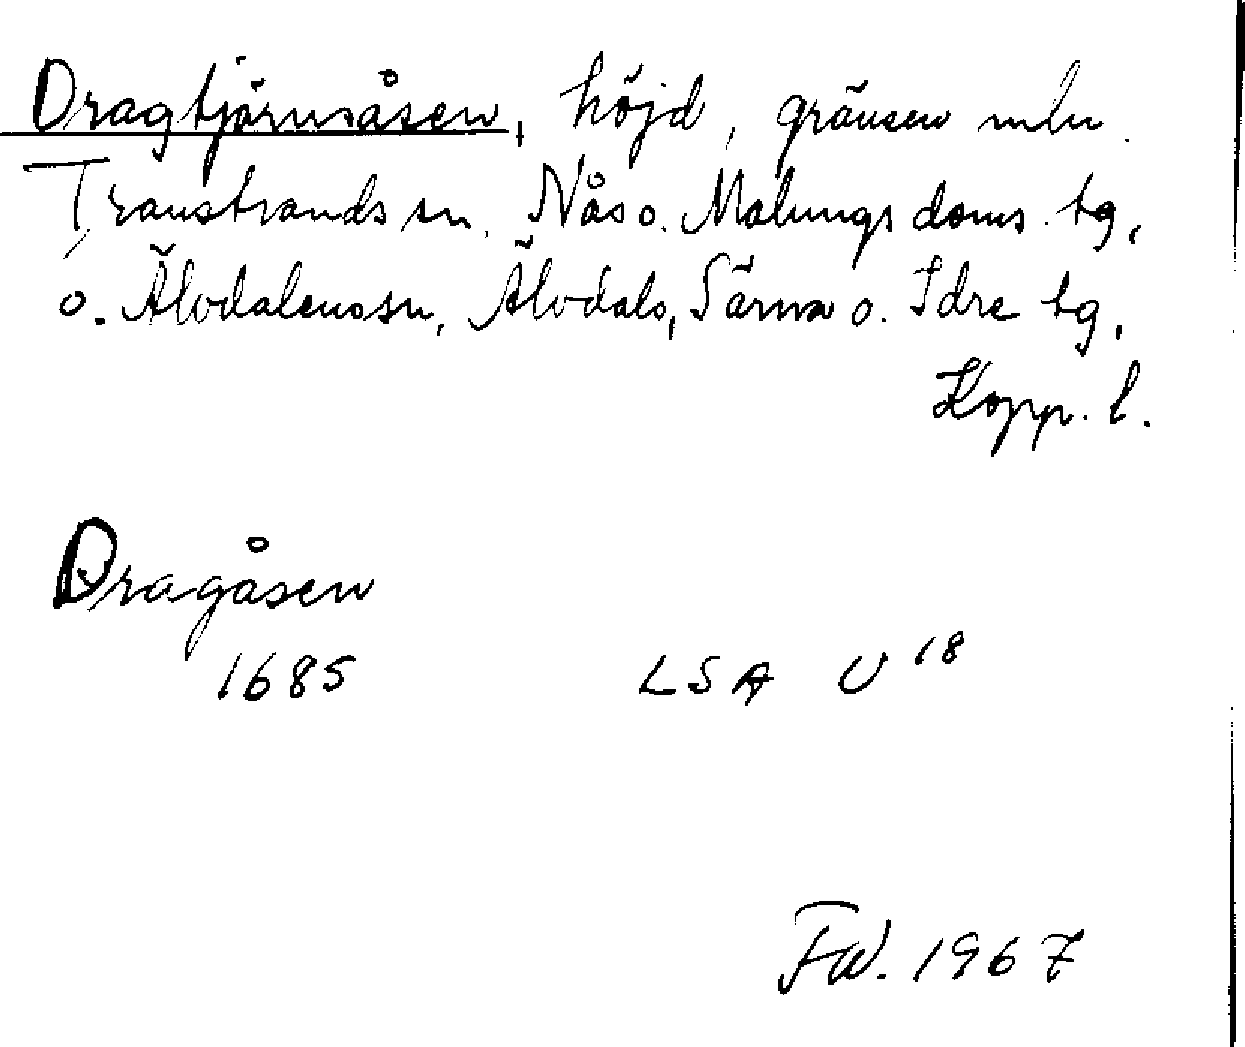 Dragtjärnsåsen, höjd, gränsen mln.
Transtrands sn. Nås o. Malungs doms. tg,
o. Älvdalens sn, Älvdals, Särna o. Idre tg,
Kopp. l.
Dragåsen
1685 LSA U 18
FW. 1967